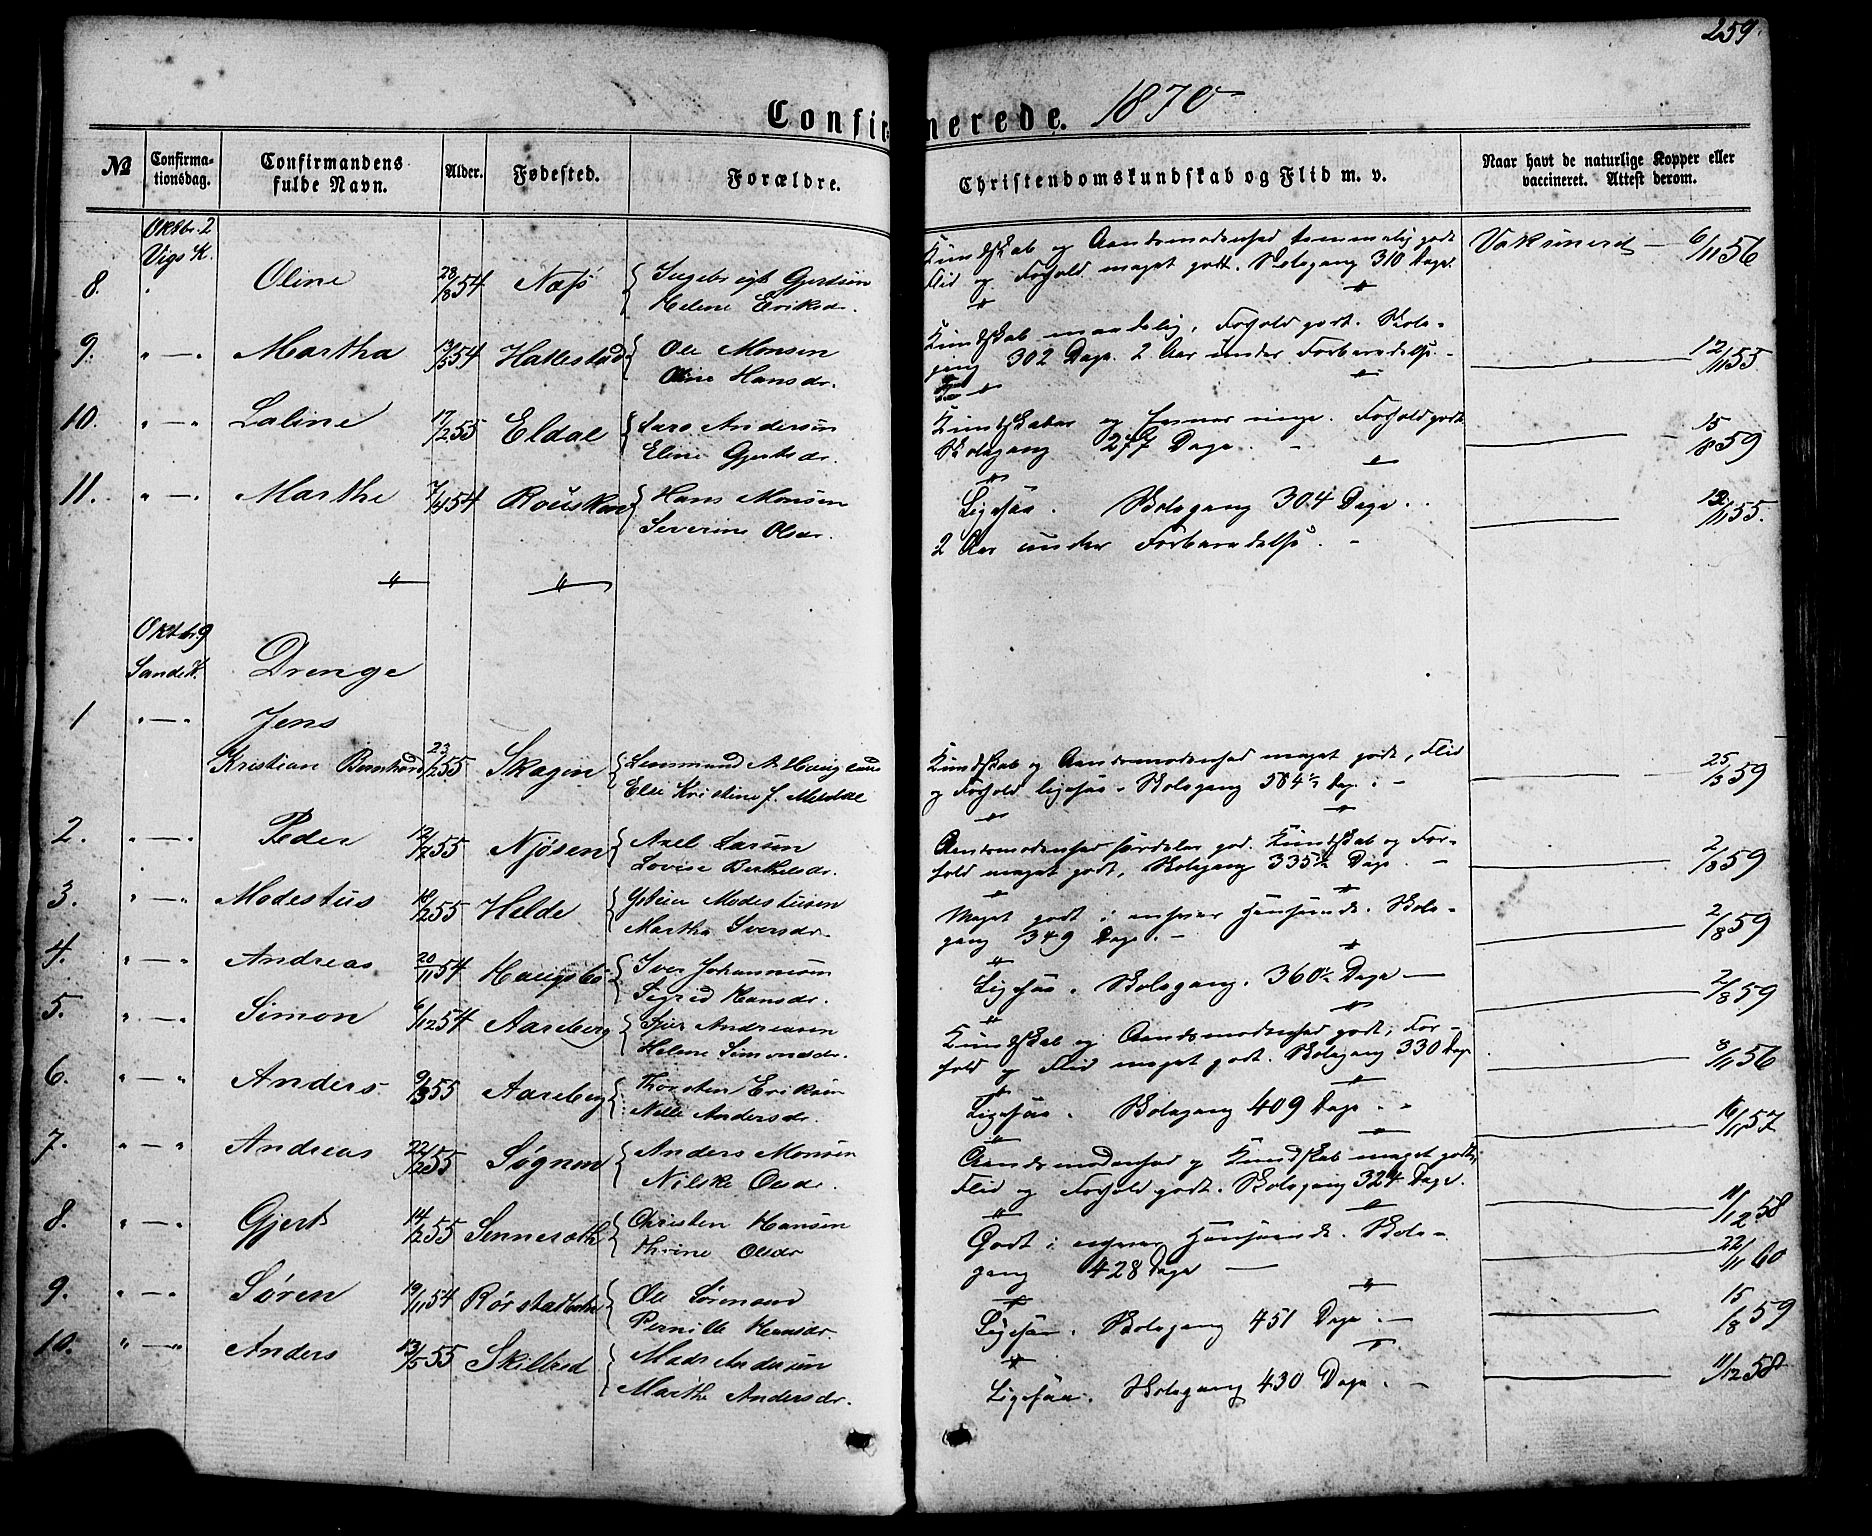 259.
Confirmerede. 1870
No
Confirma-
tionsdag.
Confirmandens
fulde Navn.
Alder.
Fødested.
Forældre.
Christendomskundskab og Flid m. v.
Naar havt de naturlige Kopper eller
vaccineret. Attest derom.
Oktbr. 2
Vigs K.
8. Oline 28/8 54 Næss { Ingebrigt Gjertsen
Helene Eriksdr.
Kundskab og Aandsmodenhed temmelig godt
Flid og Forhold meget godt. Skolegang 310 Dage.
Vaksinered — 6/11 56
9. " — " Martha 54 Hallestad { Ole Monsen
Oline Hansdr.
Kundskab maadelig, Forhold godt. Skole-
gang 302 Dage. 2 Aar under Forberedelse. -
12/11 55
10. " — " Laline 17/2 55 Eldal { Lars Andersen
Eline Gjertsdr.
Kundskaber og Evner ringe. Forhold godt
Skolegang 277 Dage. -
15/8 59
11. " — " Marthe 54 { Hans Monsen
Severine Olsdr.
Ligesaa. Skolegang 304 Dage. .
2 Aar under Forberedelse. -
12/11 55.
" "
Oktbr. 9
Sande K. Drenge
1 " — " Jens
Kristian Bernhard 23/2 55 Skagen { Lensmand A.
Else Kristine J.
Kundskab og Aandsmodenhed meget godt, Flid
og Forhold ligesaa. Skolegang 584 ½ Dage. -
25/3 59
2. " — " Peder 12/2 55 Njøsen { Axel Larsen
Lovise
Aandsmodenhed særdeles god. Kundskab og For-
hold meget godt, Skolegang 335 ½ Dage. -
2/8 59
3. " — " Modestus 55 Helde { Modestusen
Martha Iversdr.
Meget godt i enhver Henseende. Skole-
gang 349 Dage. -
2/8 59
4. " — " Andreas 20/11 54 { Iver Johannesen
Sigrid Hansdr.
Ligesaa. Skolegang. 360 ½ Dage —
2/8 59
5. " — " Simon 6/12 54 Aareberg { Andreasen
Helene Simonsdr.
Kundskab og Aandsmodenhed godt, For-
hold og Flid meget godt. Skolegang 330 Dage
3/11 56
6. " — " Anders 9/3 55 Aareberg { Thorsten Eriksen
Nille Andersdr.
Ligesaa. Skolegang 409 Dage. -
57
7. " — " Andreas 22/2 55 Søgnen { Anders Monsen
Nilske Olsdr.
Aandsmodenhed og Kundskab meget godt,
Flid og Forhold godt. Skolegang 324 Dage.
11/12 58
8. " — " Gjert 14/2 55 { Christen Hansen
Thrine Olsdr
Godt i enhver Henseende. Skole-
gang 428 Dage —
22/11 60
9. " — " Søren 19/11 54 { Ole Sørensen
Pernille Hansdr.
Ligesaa. Skolegang 451 Dage. —
15/8 59
10. " — " Anders 13/5 55 Skilbred { Mads Andersen
Marthe Andersdr.
Ligesaa. Skolegang 430 Dage. -
11/12 58